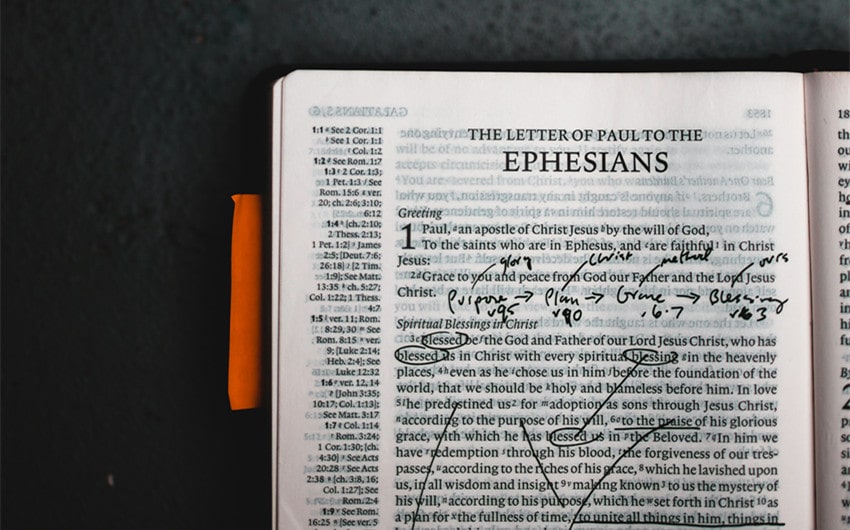 THE LETTER OF PAUL TO THE
EPHESIANS
1:1 ᵃ See 2 Cor. 1:1
ᵇ See 1 Cor. 1:1
ᶜ Col. 1:2
1:2 ᵈ See Rom. 1:7
1:3 ᵉ 2 Cor. 1:3;
1 Pet. 1:3 ᶠ See
Rom. 15:6 ᵍ ver.
20; ch. 2:6; 3:10;
6:12
1:4 ʰ [ch. 2:10;
2 Thess. 2:13;
1 Pet. 1:2] ⁱ James
2:5; [Deut. 7:6;
26:18] ʲ [2 Tim.
1:9]; See Matt.
13:35 ᵏ ch. 5:27;
Col. 1:22; 1 Thess.
4:7
1:5 ˡ ver. 11; Rom.
8:29, 30 ᵐ See
Rom. 8:15 ⁿ ver.
9; [Luke 2:14;
Heb. 2:4]; See
Luke 12:32
1:6 ᵒ ver. 12, 14
ᵖ [John 3:35;
10:17; Col. 1:13];
See Matt. 3:17
1:7 ᵍ Col. 1:14
ʳ Rom. 3:24;
1 Cor. 1:30; [ch.
4:30] ˢ See Acts
20:28 ᵗ See Acts
2:38 ᵘ [ch. 3:8, 16;
Col. 1:27]; See
Rom. 2:4
1:9 ᵛ See Rom.
16:25 ⁿ [See ver. 5
Greeting
1 Paul, ᵃan apostle of Christ Jesus ᵇby the will of God,
To the saints who are in Ephesus, and ᶜare faithful¹ in Christ
Jesus:
glory Christ method ours
²ᵈGrace to you and peace from God our Father and the Lord Jesus
Christ.
Purpose → Plan → Grace → Blessing
Spiritual Blessings in Christ
³ᵉBlessed be ᶠthe God and Father of our Lord Jesus Christ, who has
blessed us in Christ with every spiritual blessing ᵍin the heavenly
places, ⁴ʰeven as he ⁱchose us in him ʲbefore the foundation of the
world, that we should be ᵏholy and blameless before him. In love
⁵ˡhe predestined us² for ᵐadoption as sons through Jesus Christ,
ⁿaccording to the purpose of his will, ⁶ᵒto the praise of his glorious
grace, with which he has blessed us in ᵖthe Beloved. ⁷ᵍIn him we
have ʳredemption ˢthrough his blood, ᵗthe forgiveness of our tres-
passes, ᵘaccording to the riches of his grace, ⁸which he lavished upon
us, in all wisdom and insight ⁹ᵛmaking known³ to us the mystery of
his will, ⁿaccording to his purpose, which he ʷset forth in Christ ¹⁰as
a plan for ˣthe fullness of time, ʸto unite all things in him, things in